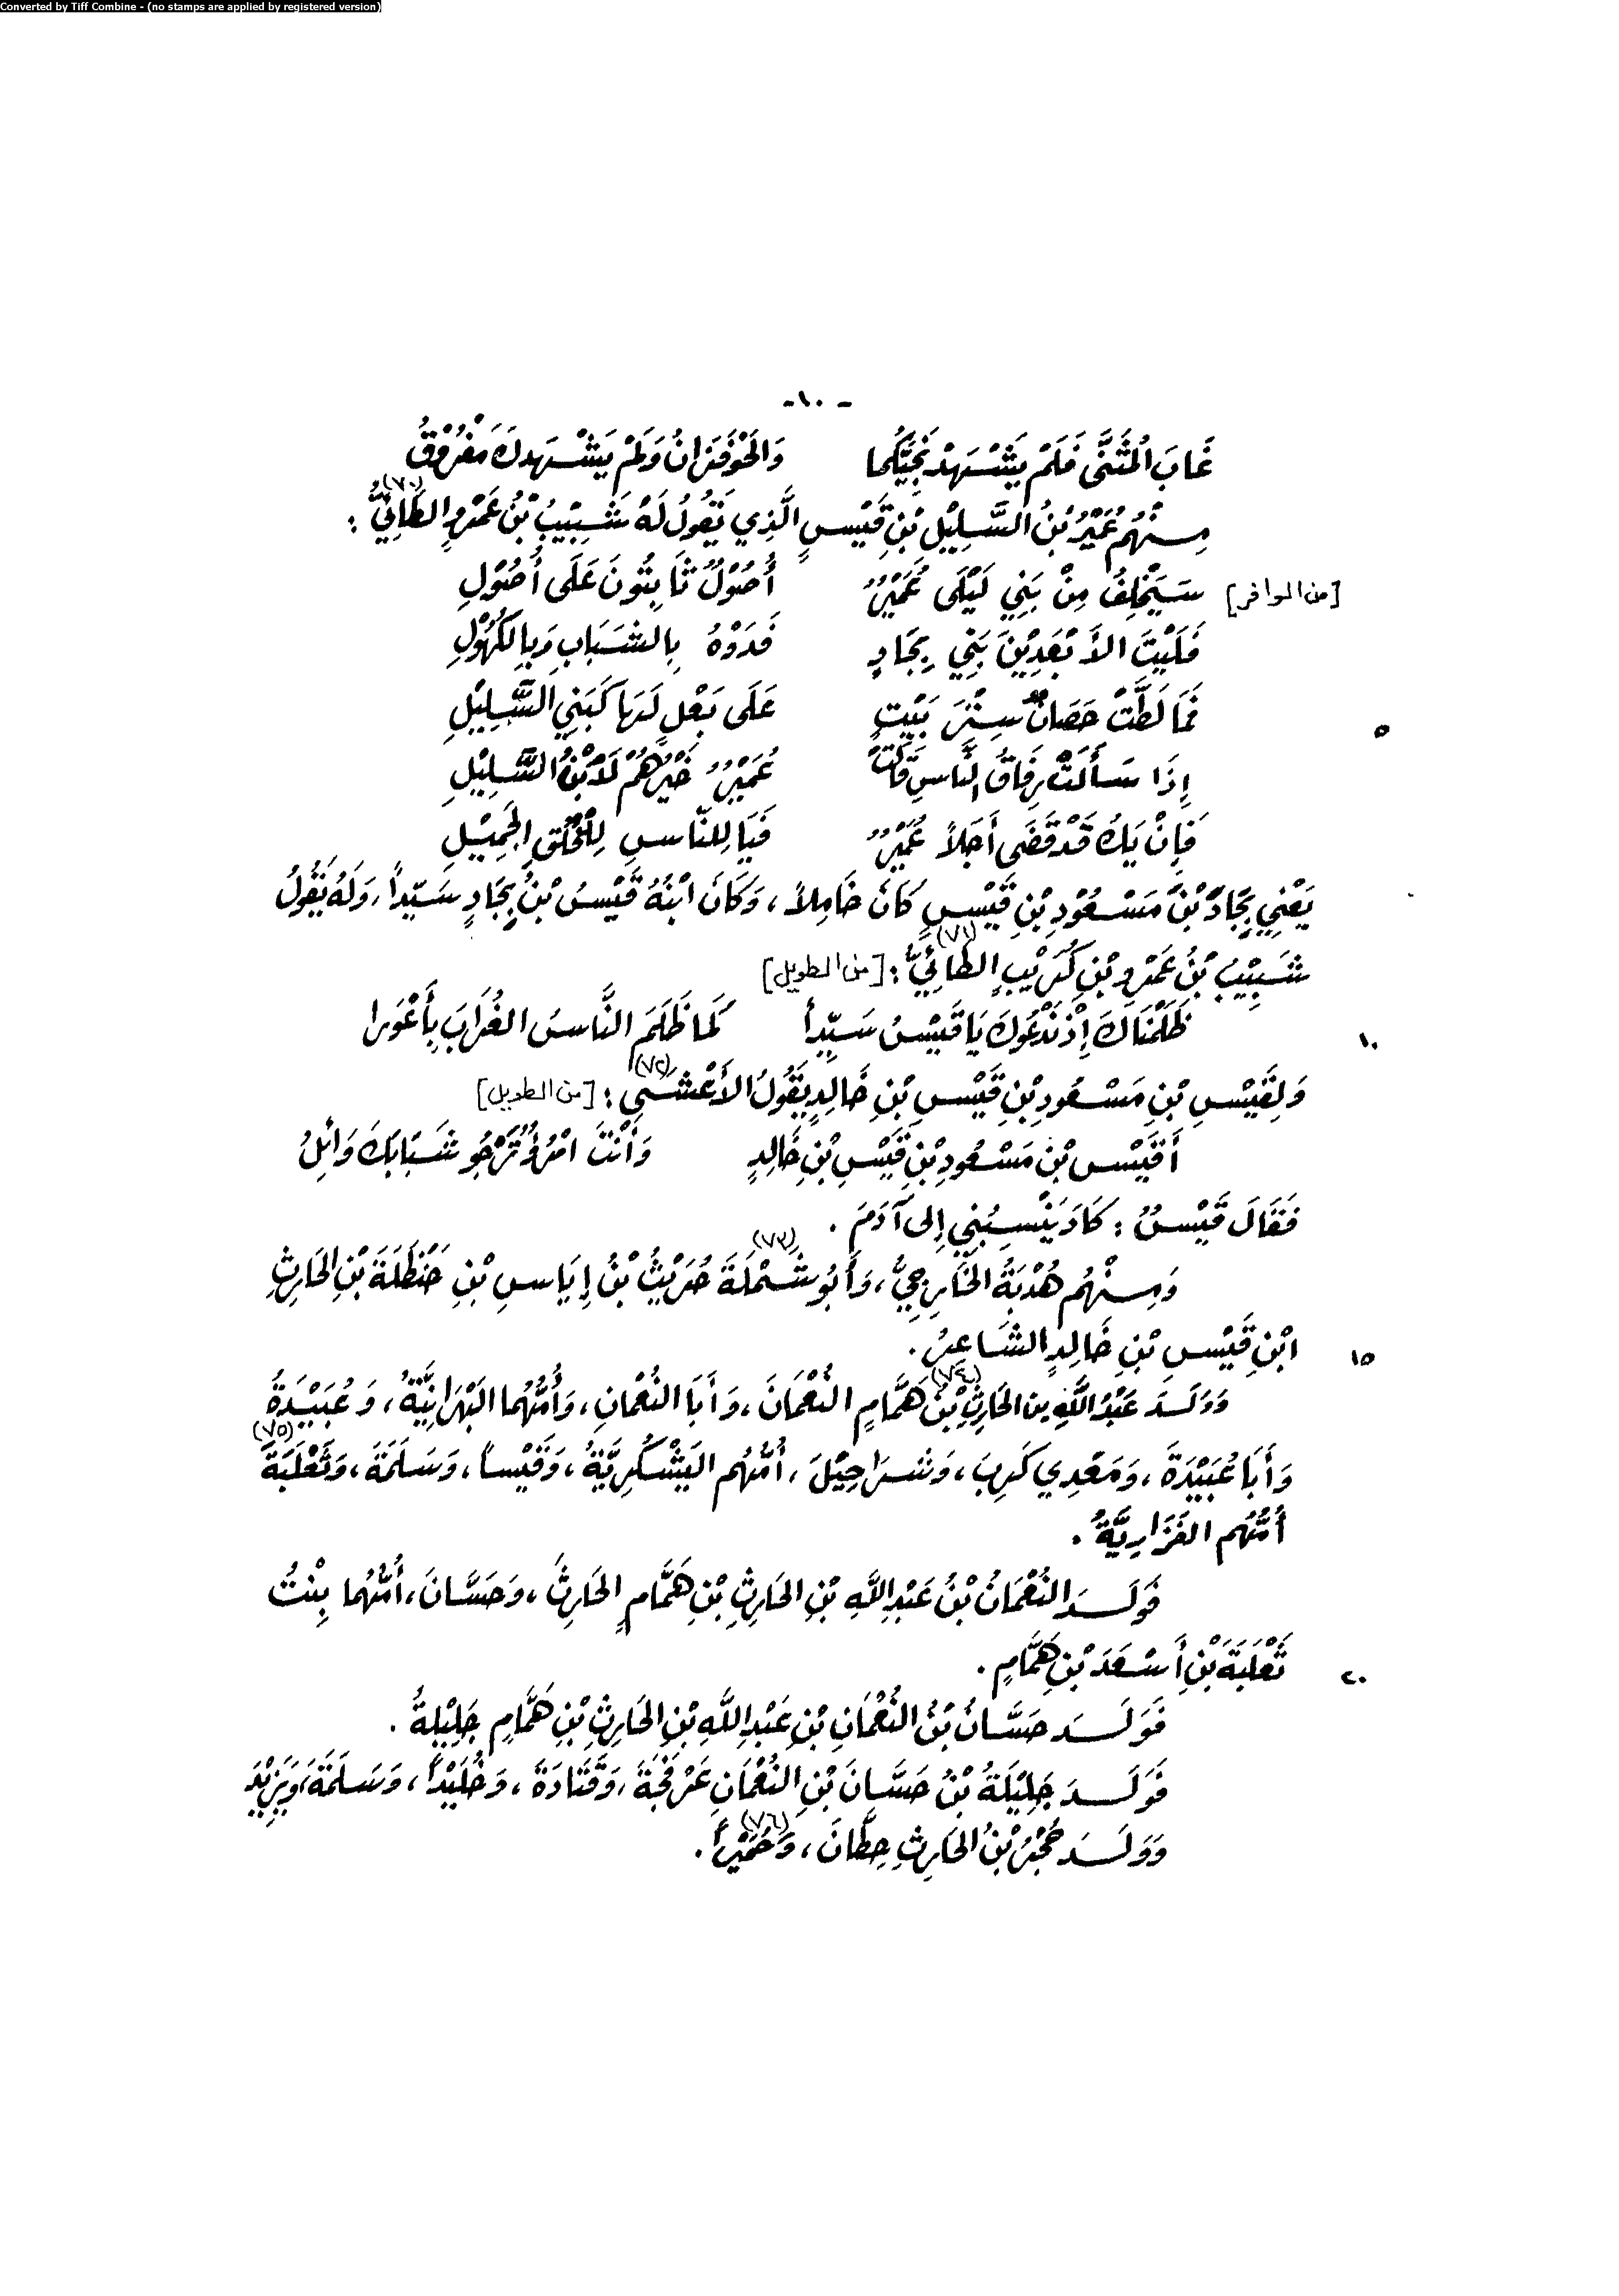 Converted by Tiff Combine - (no stamps are applied by registered version)
- ١٠ -
غَابَ المُثَنَّى فَلَمْ يَشْهَدْ نَجِيَّكُما وَالحَوْفَزَانُ وَلَمْ يَشْهَدكَ مَفْرُوْقُ
مِنْهُم عُمَيْرُ بْنُ السَّلِيْلِ بْنِ قَيْسٍ الَّذِي يَقُولُ لَهُ شَبِيْبُ بْنُ عَمْرٍو الطَائِيُّ (٧٠) :
[من الوافر] سَيَخْلِفُ مِنْ بَنِي لَيْلَى عُمَيْرٌ أُصُوْلٌ ثَابِتُونَ عَلَى أُصُوْلِ
فَلَيْتَ الأَبْعَدِيْنَ بَنِي بِجَادٍ فَدَوْهُ بِالشَبَابِ وَبِالكُهُوْلِ
٥ فَمَا لَطَّتْ حَصَانٌ سِتْرَ بَيْتٍ عَلَى بَعْلٍ لَهَا كَبَنِي السَّلِيْلِ
إِذَا سَأَلَتْ رِفَاقُ النَّاسِ قَالَتْ عُمَيْرٌ خَيْرُهُمْ لَابْنُ السَّلِيْلِ
فَإِنْ يَكُ قَدْ قَضَى أَجَلاً عُمَيْرٌ فَيَا لِلنَّاسِ لِلْخُلُقِ الجَمِيْلِ
يَعْنِي بِجَادَ بْنَ مَسْعُوْدِ بْنِ قَيْسٍ كَانَ خَامِلاً، وَكَانَ ابْنُهُ قَيْسُ بْنُ بِجَادٍ سَيِّداً، وَلَهُ يَقُولُ
شَبِيْبُ بْنُ عَمْرِو بْنِ كُرَيْبٍ الطَائِيُّ (٧١) : [من الطويل]
١٠ ظَلَمْنَاكَ إِذْ نَدْعُوكَ يَا قَيْسُ سَيِّداً كَمَا ظَلَمَ النَّاسُ الغُرَابَ بِأَعْوَرا
وَلِقَيْسِ بْنِ مَسْعُودِ بْنِ قَيْسِ بْنِ خَالِدٍ يَقُولُ الأَعْشَى (٧٢) : [من الطويل]
أَقَيْسُ بْنَ مَسْعُودِ بْنِ قَيْسِ بْنِ خَالِدٍ وَأَنْتَ امْرُؤٌ تَرْجُو شَبَابَكَ وَائِلُ
فَقَالَ قَيْسٌ : كَادَ يَنْسِبُنِي إِلى آدَمَ .
وَمِنْهُم هُدْبَةُ الخَارِجِيُّ، وَأَبُو شَمْلَةَ (٧٣) حُرَيْثُ بْنُ إِيَاسِ بْنِ حَنْظَلَةَ بْنِ الحَارِثِ
١٥ ابْنِ قَيْسِ بْنِ خَالِدٍ الشَاعِرُ .
وَوَلَدَ عَبْدُ اللَّهِ بن الحَارِثِ (٧٤) بْنِ هَمَّامٍ النُعْمَانَ، وَأَبَا النُعْمَانِ، وَأُمُّهُما البَهْرَانِيَّةُ، وَعُبَيْدَةُ
وَأَبَا عُبَيْدَةَ، وَمَعْدِي كَرِبَ، وَشَرَاحِيْلَ، أُمُّهُم اليَشْكُرِيَّةُ، وَقَيْساً، وَسَلَمَةَ، وَثَعْلَبَةَ (٧٥)
أُمُّهُم الفَزَارِيَّةُ .
فَوَلَدَ النُعْمَانُ بْنُ عَبْدِ اللَّهِ بْنِ الحَارِثِ بْنِ هَمَّامٍ الحَارِثَ، وَحَسَّانَ، أُمُّهُما بِنْتُ
٢٠ ثَعْلَبَةَ بْنِ أَسْعَدَ بْنِ هَمَّامٍ .
فَوَلَدَ حَسَّانُ بْنُ النُعْمَانِ بْنِ عَبْدِ اللَّهِ بْنِ الحَارِثِ بْنِ هَمَّامٍ جَلِيْلةُ .
فَوَلَدَ جَلِيْلَةُ بْنُ حَسَّانَ بْنِ النُعْمَانِ عَرْفَجَةَ، وَقَتَادَةَ، وَخُلَيْداً، وَسَلَمَةَ، وَيَزِيْدَ
وَوَلَدَ حُجْرُ بْنُ الحَارِثِ حِطَّانَ، وَحُمَيْراً (٧٦) .